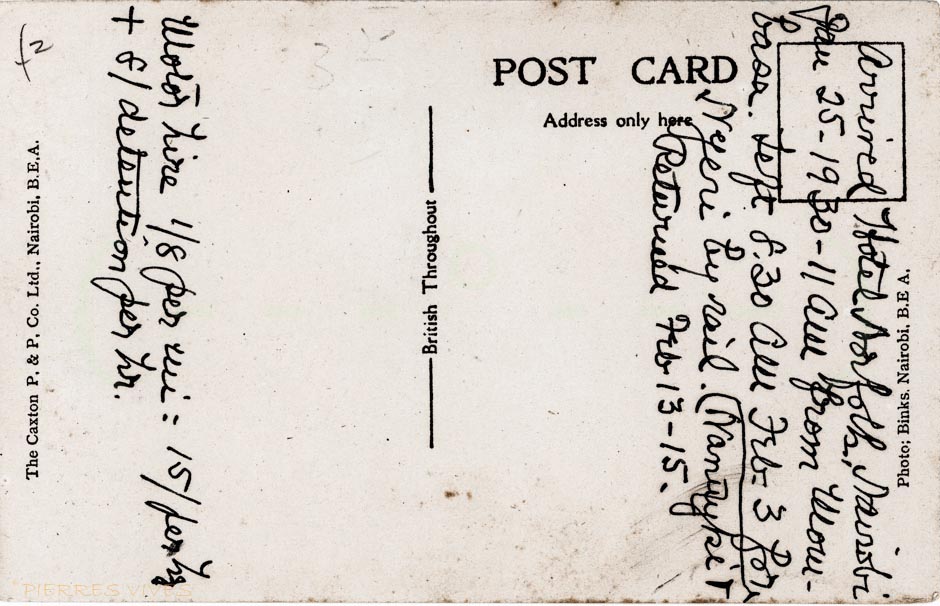 POST CARD
Address only here
British Throughout
The Caxton P. & P. Co. Ltd., Nairobi, B.E.A.
Photo; Binks. Nairobi, B.E.A.
Arrived Hotel Norfolk, Nairobi
Jan 25-1930-11 am from Mom-
basa. Left 8.30 am Feb-3 for
Nyeri by rail. (Nanyuki +
Returned Feb 13-15.
Motor hire 1/8 per mi = 15/per
+ 8/ detention per hr.
PIERRES VIVES